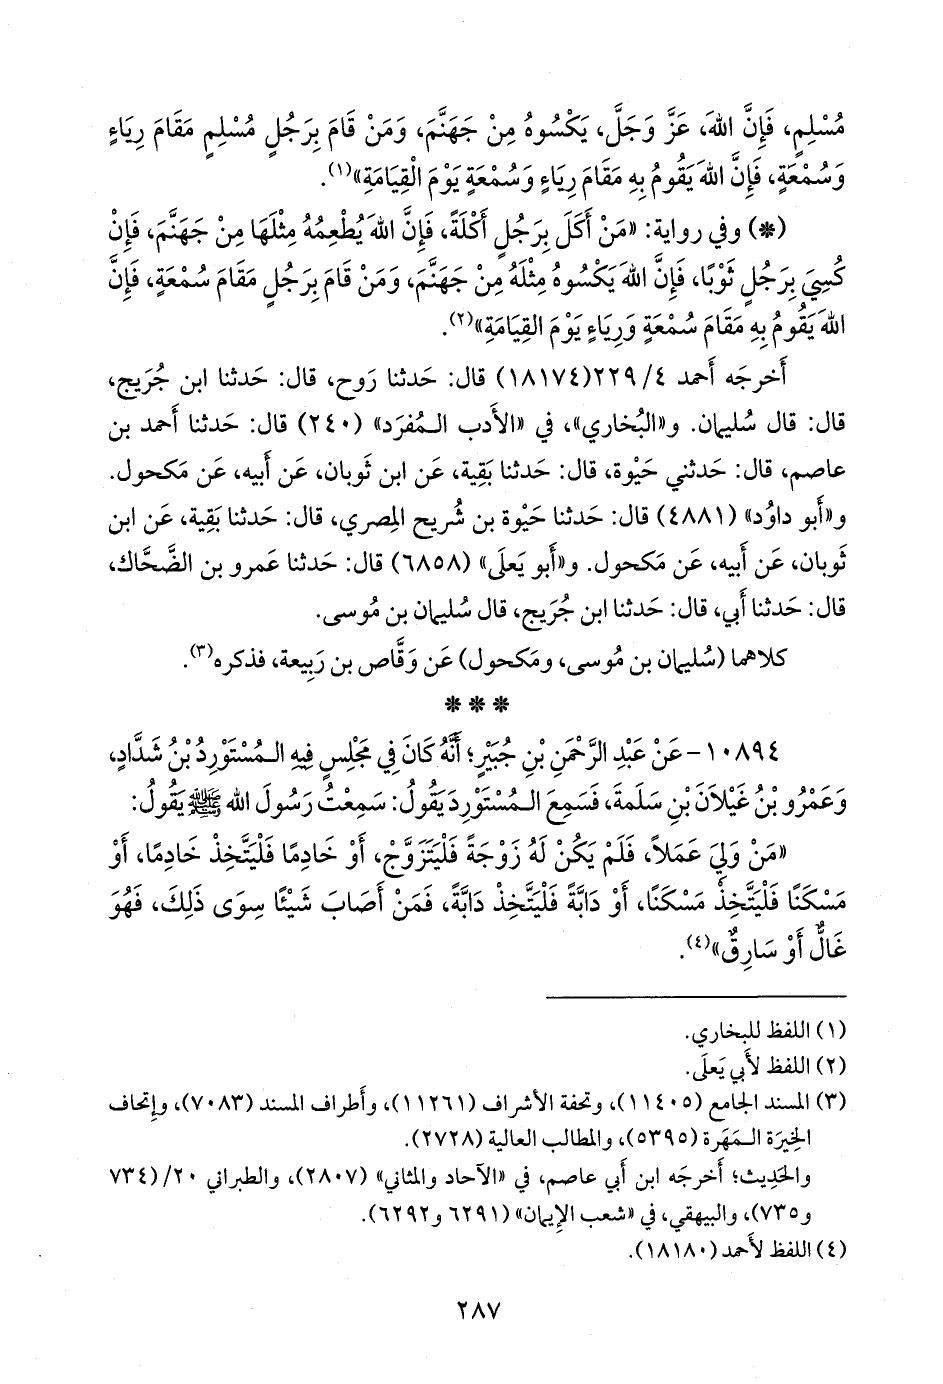 مُسْلِمٍ، فَإِنَّ اللهَ، عَزَّ وَجَلَّ، يَكْسُوهُ مِنْ جَهَنَّمَ، وَمَنْ قَامَ بِرَجُلٍ مُسْلِمٍ مَقَامَ رِيَاءٍ
وَسُمْعَةٍ، فَإِنَّ اللهَ يَقُومُ بِهِ مَقَامَ رِيَاءٍ وَسُمْعَةٍ يَوْمَ الْقِيَامَةِ»(١).
(*) وفي رواية: «مَنْ أَكَلَ بِرَجُلٍ أَكْلَةً، فَإِنَّ اللهَ يُطْعِمُهُ مِثْلَهَا مِنْ جَهَنَّمَ، فَإِنْ
كُسِيَ بِرَجُلٍ ثَوْبًا، فَإِنَّ اللهَ يَكْسُوهُ مِثْلَهُ مِنْ جَهَنَّمَ، وَمَنْ قَامَ بِرَجُلٍ مَقَامَ سُمْعَةٍ، فَإِنَّ
اللهَ يَقُومُ بِهِ مَقَامَ سُمْعَةٍ وَرِيَاءٍ يَوْمَ القِيَامَةِ»(٢).
أَخرجَه أَحمد ٤/ ٢٢٩(١٨١٧٤) قال: حَدثنا رَوح، قال: حَدثنا ابن جُرَيج،
قال: قال سُليمان. و«البُخاري»، في «الأَدب المُفرَد» (٢٤٠) قال: حَدثنا أَحمد بن
عاصم، قال: حَدثني حَيْوة، قال: حَدثنا بَقِية، عَن ابن ثَوبان، عَن أَبيه، عَن مَكحول.
و«أَبو داوُد» (٤٨٨١) قال: حَدثنا حَيْوة بن شُريح المِصري، قال: حَدثنا بَقِية، عَن ابن
ثَوبان، عَن أَبيه، عَن مَكحول. و«أَبو يَعلَى» (٦٨٥٨) قال: حَدثنا عَمرو بن الضَّحَّاك،
قال: حَدثنا أَبي، قال: حَدثنا ابن جُرَيج، قال سُليمان بن مُوسى.
كلاهما (سُليمان بن مُوسى، ومَكحول) عَن وَقَّاص بن رَبِيعة، فذكره(٣).
* * *
١٠٨٩٤ - عَنْ عَبْدِ الرَّحْمَنِ بْنِ جُبَيْرٍ؛ أَنَّهُ كَانَ فِي مَجْلِسٍ فِيهِ المُسْتَوْرِدُ بْنُ شَدَّادٍ،
وَعَمْرُو بْنُ غَيْلَانَ بْنِ سَلَمَةَ، فَسَمِعَ المُسْتَوْرِدَ يَقُولُ: سَمِعْتُ رَسُولَ اللهِ ﷺ يَقُولُ:
«مَنْ وَلِيَ عَمَلًا، فَلَمْ يَكُنْ لَهُ زَوْجَةٌ فَلْيَتَزَوَّجْ، أَوْ خَادِمًا فَلْيَتَّخِذْ خَادِمًا، أَوْ
مَسْكَنًا فَلْيَتَّخِذْ مَسْكَنًا، أَوْ دَابَّةً فَلْيَتَّخِذْ دَابَّةً، فَمَنْ أَصَابَ شَيْئًا سِوَى ذَلِكَ، فَهُوَ
غَالٌّ أَوْ سَارِقٌ»(٤).
(١) اللفظ للبخاري.
(٢) اللفظ لأَبي يَعلَى.
(٣) المسند الجامع (١١٤٠٥)، وتحفة الأشراف (١١٢٦١)، وأَطراف المسند (٧٠٨٣)، وإِتحاف
الخِيرَة المَهَرة (٥٣٩٥)، والمطالب العالية (٢٧٢٨).
والحَدِيث؛ أَخرجَه ابن أَبي عاصم، في «الآحاد والمثاني» (٢٨٠٧)، والطبراني ٢٠/ (٧٣٤
و٧٣٥)، والبيهقي، في «شعب الإِيمان» (٦٢٩١ و٦٢٩٢).
(٤) اللفظ لأَحمد (١٨١٨٠).
٢٨٧